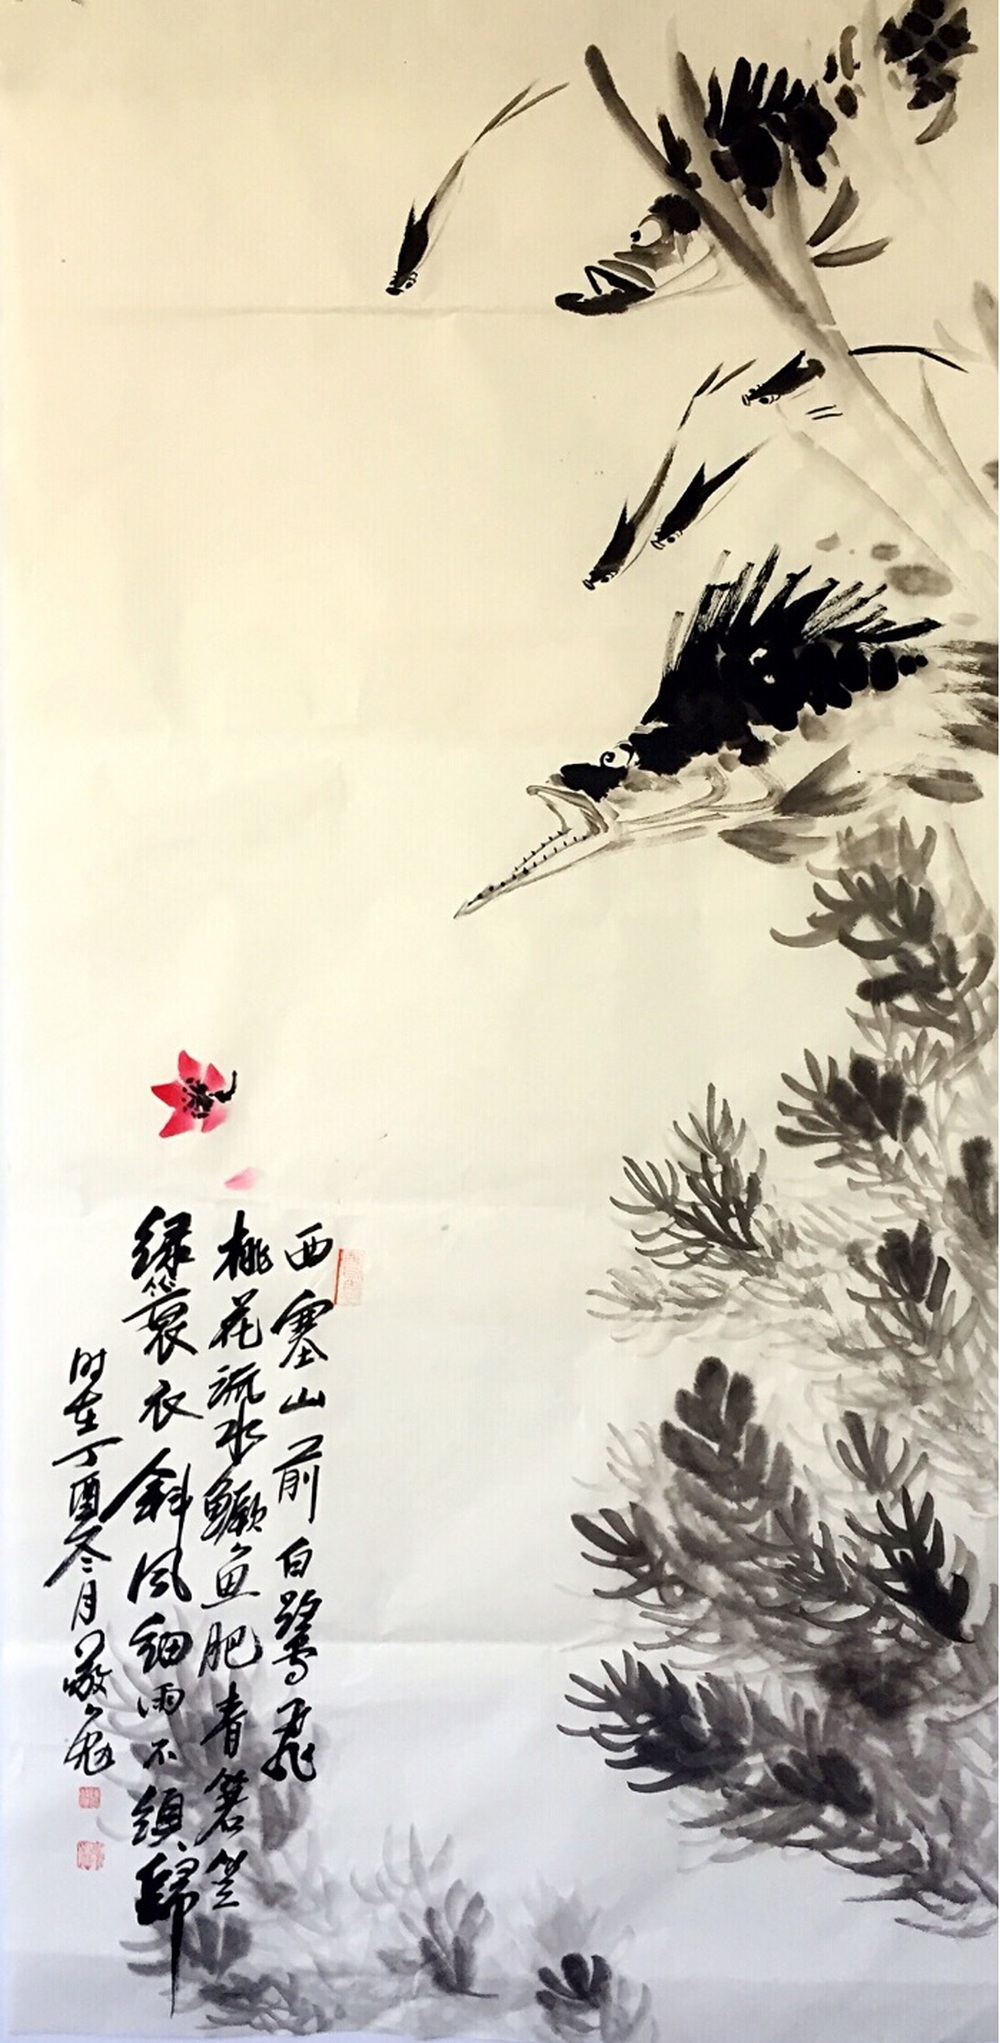 西塞山前白鹭飛
桃花流水鳜鱼肥青箬笠
绿蓑衣斜风细雨不须歸
时在丁酉冬月